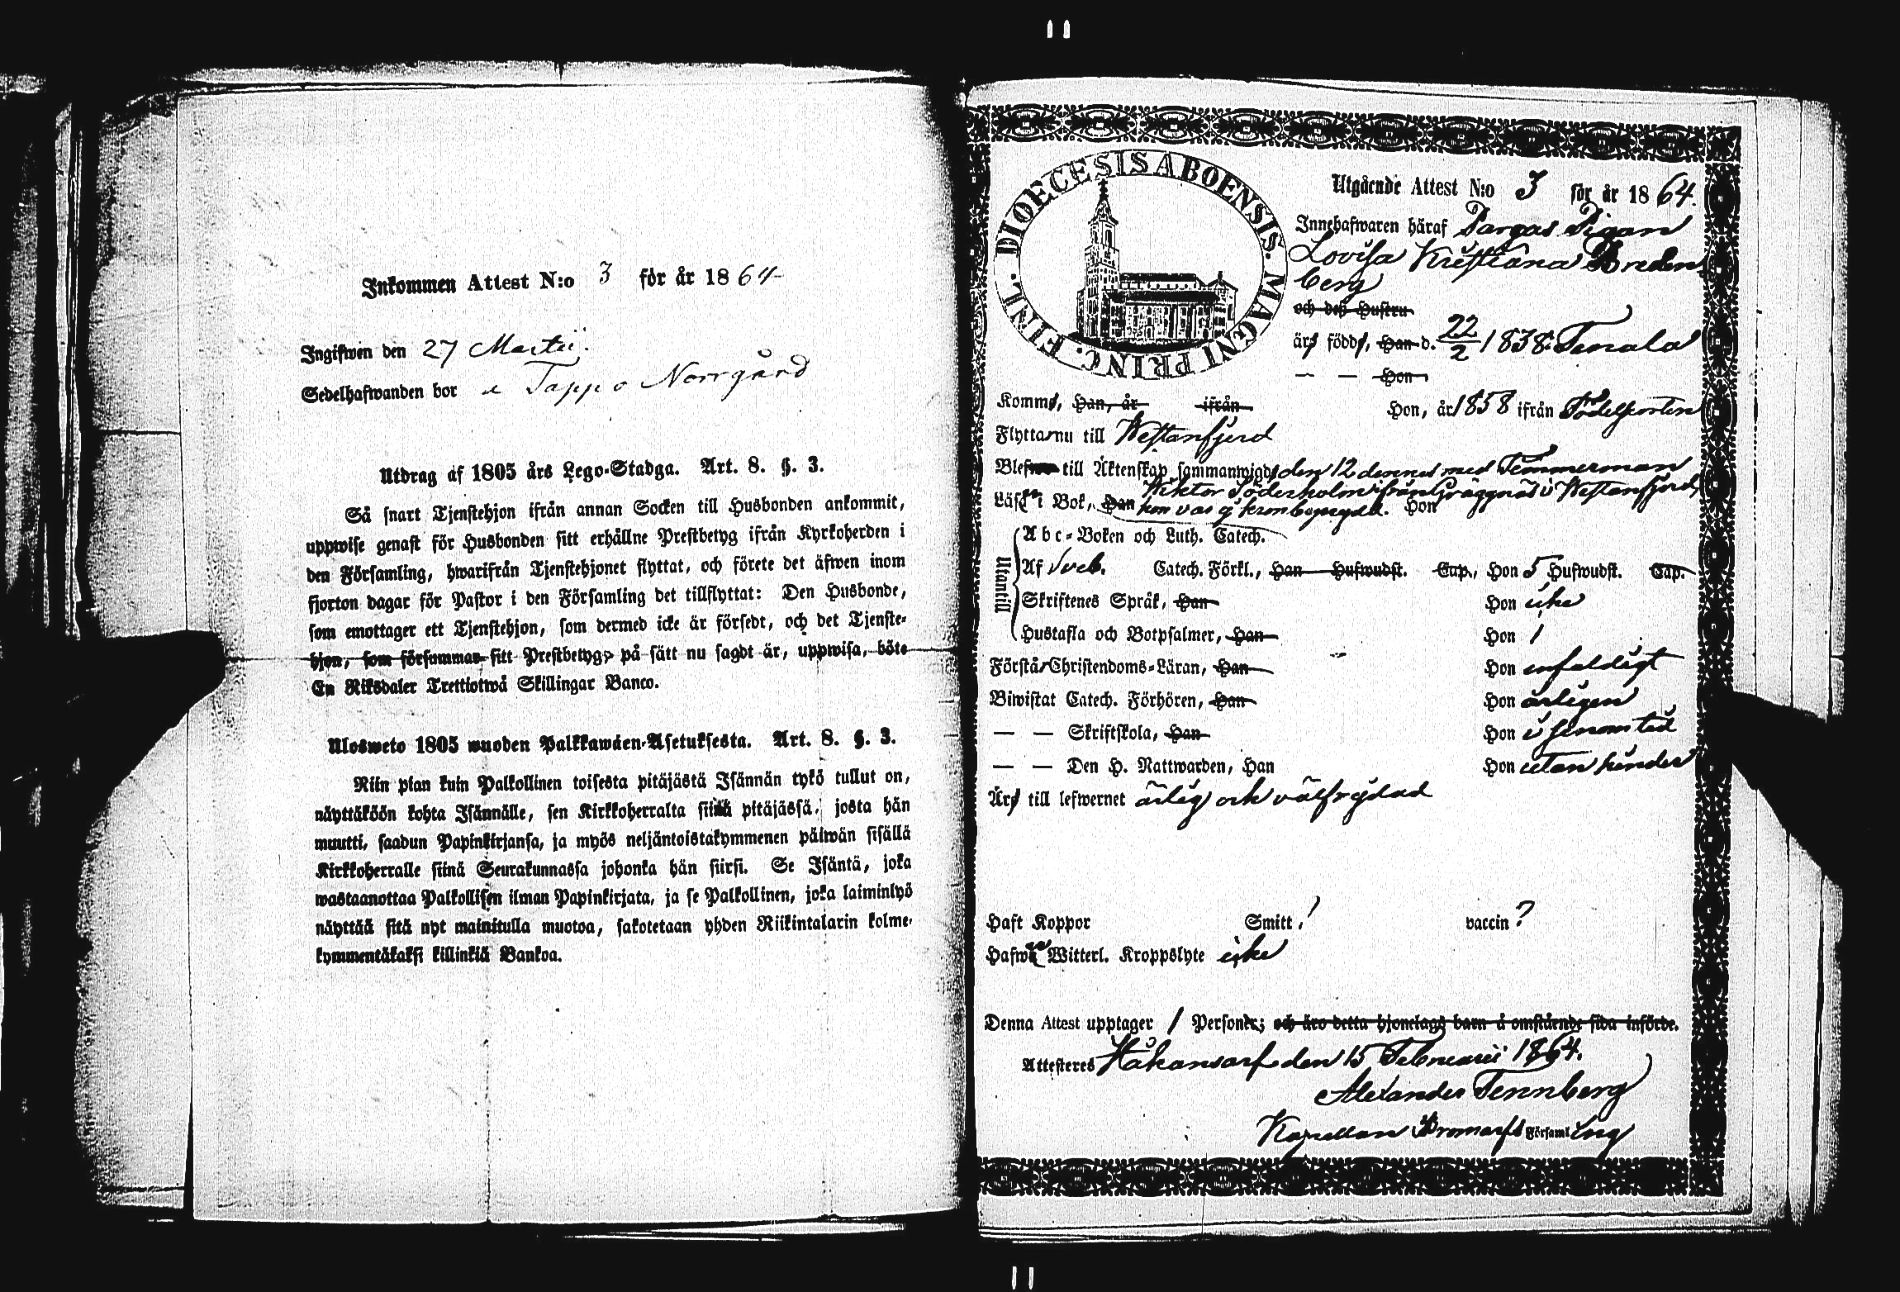 Inkommen Attest N:o 3 för år 1864
Ingifwen den 27 Martii.
Sedelhafwanden bor i Tappo Norrgård
Utdrag af 1805 års Lego-Stadga. Art. 8. §. 3.
Så snart Tjenstehjon ifrån annan Socken till Husbonden ankommit,
uppwise genast för Husbonden sitt erhållne Prestbetyg ifrån Kyrkoherden i
den Församling, hwarifrån Tjenstehjonet flyttat, och förete det äfwen inom
fjorton dagar för Pastor i den Församling det tillflyttat: Den Husbonde,
som emottager ett Tjenstehjon, som dermed icke är försedt, och det Tjenste-
hjon, som försummar sitt Prestbetyg, på sätt nu sagdt är, uppwisa, böte
En Riksdaler Trettiotwå Skillingar Banco.
Ulosweto 1805 wuoden Palkkawäen-Asetuksesta. Art. 8. §. 3.
Niin pian kuin Palkollinen toisesta pitäjästä Isännän tykö tullut on,
näyttäköön kohta Isännälle, sen Kirkkoherralta siinä pitäjässä, josta hän
muutti, saadun Papinkirjansa, ja myös neljäntoistakymmenen päiwän sisällä
Kirkkoherralle siinä Seurakunnassa johonka hän siirsi. Se Isäntä, joka
wastaanottaa Palkollisen ilman Papinkirjata, ja se Palkollinen, joka laiminlyö
näyttää sitä nyt mainitulla muotoa, sakotetaan yhden Riikintalarin kolme-
kymmentäkaksi killinkiä Bankoa.
DIOECESIS ABOENSIS. MAGNI PRINC. FINL.
Utgående Attest N:o 3 för år 1864.
Innehafwaren häraf Pargas Pigan
Lovisa Kristiana Breden
berg
och deß Hustru
är födde, Han d. 22/2 1838. Tenala
— — Hon
Komme, Han, år ifrån Hon, år 1858 ifrån Födelseorten
Flytta nu till Westanfjerd
Blefwo till Äktenskap sammanwigde den 12 dennes med Timmerman
Wiktor Söderholm ifrån Gräggnäs i Westanfjerd,
Läser i Bok, Han hon var ej kronbrygd. Hon
Utantill
Abc-Boken och Luth. Catech.
Af Sveb. Catech. Förkl., Han Hufwudst. Cap., Hon 5 Hufwudst. Cap.
Skriftenes Språk, Han Hon icke
Hustafla och Botpsalmer, Han Hon 1
Förstår Christendoms-Läran, Han Hon enfaldigt
Biwistat Catech. Förhören, Han Hon årligen
— — Skriftskola, Han Hon i sinom tid
— — Den H. Nattwarden, Han Hon utan hinder
Är till lefwernet ärlig och välfrejdad
Haft Koppor Smitt 1 vaccin ?
Hafwa Witterl. Kroppslyte icke
Denna Attest upptager 1 Personer; och äro detta hjonelags barn å omstående sida införde.
Attesteres Håkansarf den 15 Februarii 1864.
Alexander Tennberg
Kapellan Bromarfs Församling